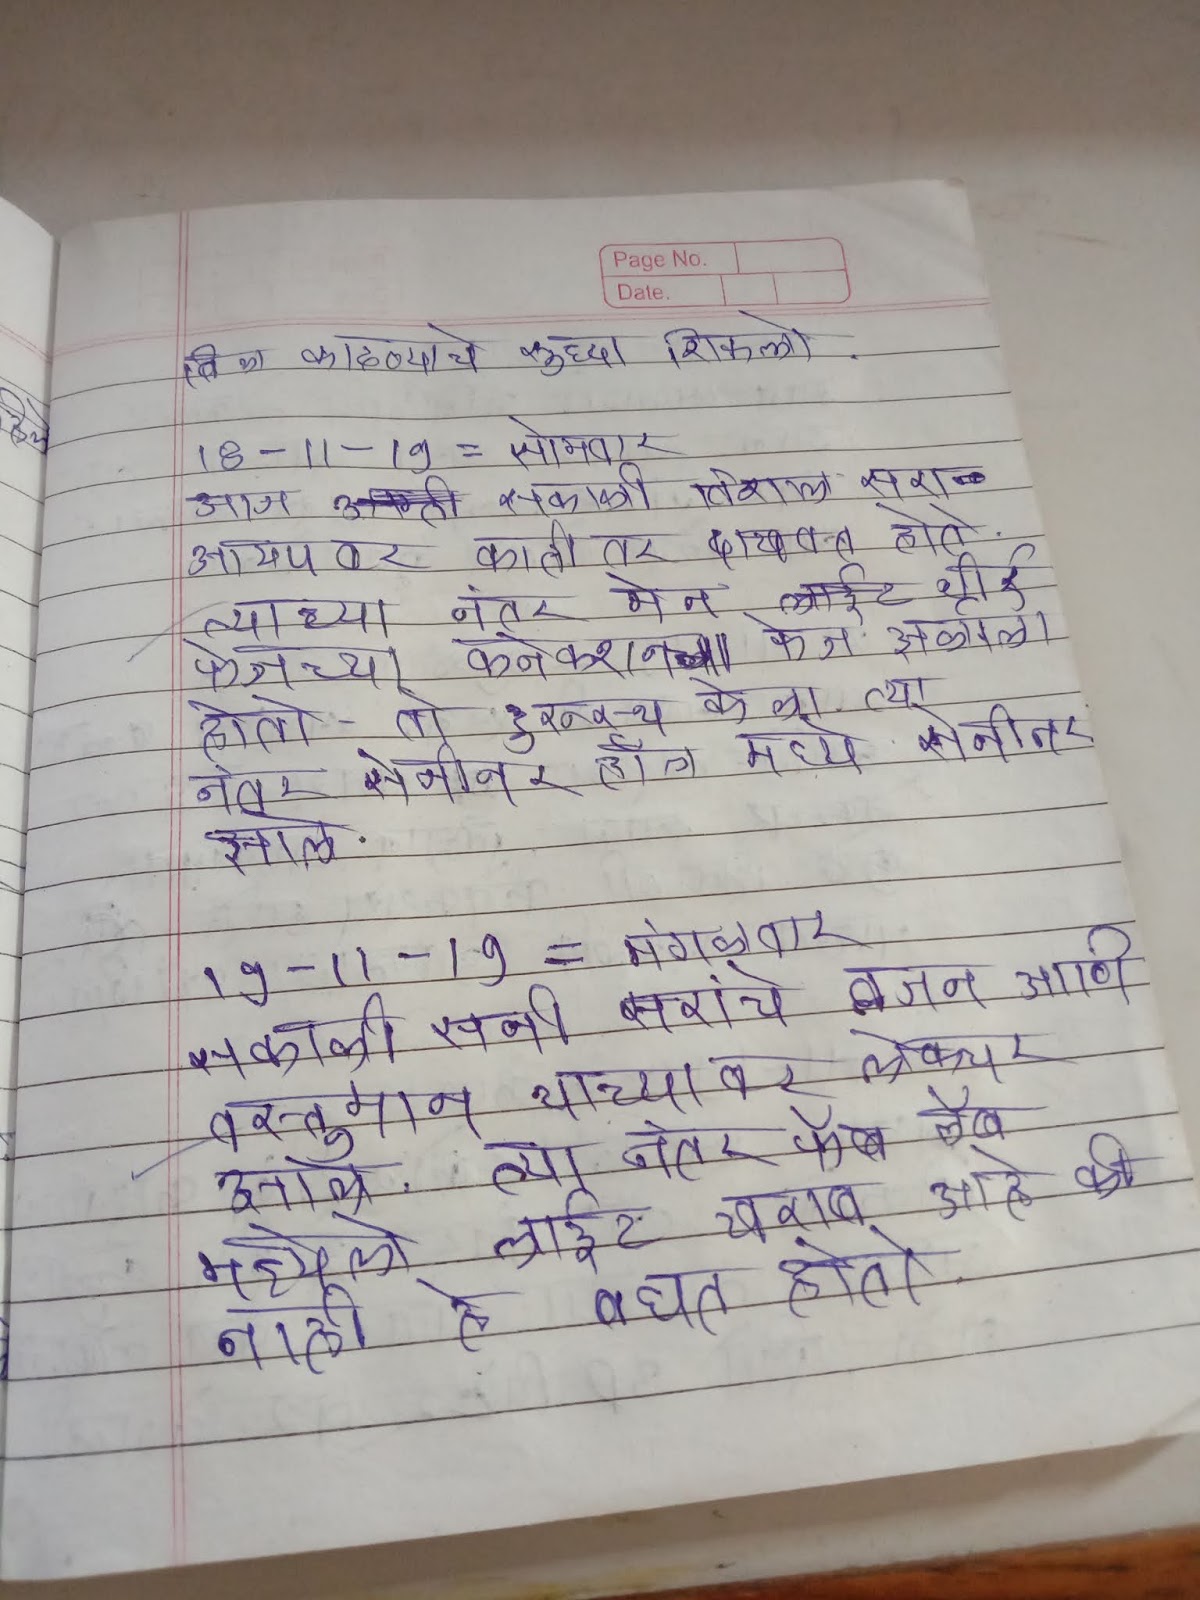 Page No.
Date.
काढण्याचे सुध्दा शिकलो.
18-11-19 = सोमवार
आज सकाळी विशाल सरा
आयप वर काहीतर दाखवत होते.
त्याच्या नंतर मेन लाईट थ्री
फेजच्या कनेक्शनला फेज
होतो - तो दुरुस्थ केला. त्या
नंतर सेमीनर हॉल मध्ये सेमीनर
झाले.
19-11-19 = मंगळवार
सकाळी सनी सरांचे वजन आणि
वस्तुमान याच्यावर लेक्चर
झाले. त्या नंतर फॅब लॅब
मध्येलो लाईट खराब आहे की
नाही हे बघत होतो.